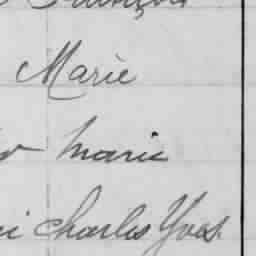 François
Marie
Marie
Charles Yves